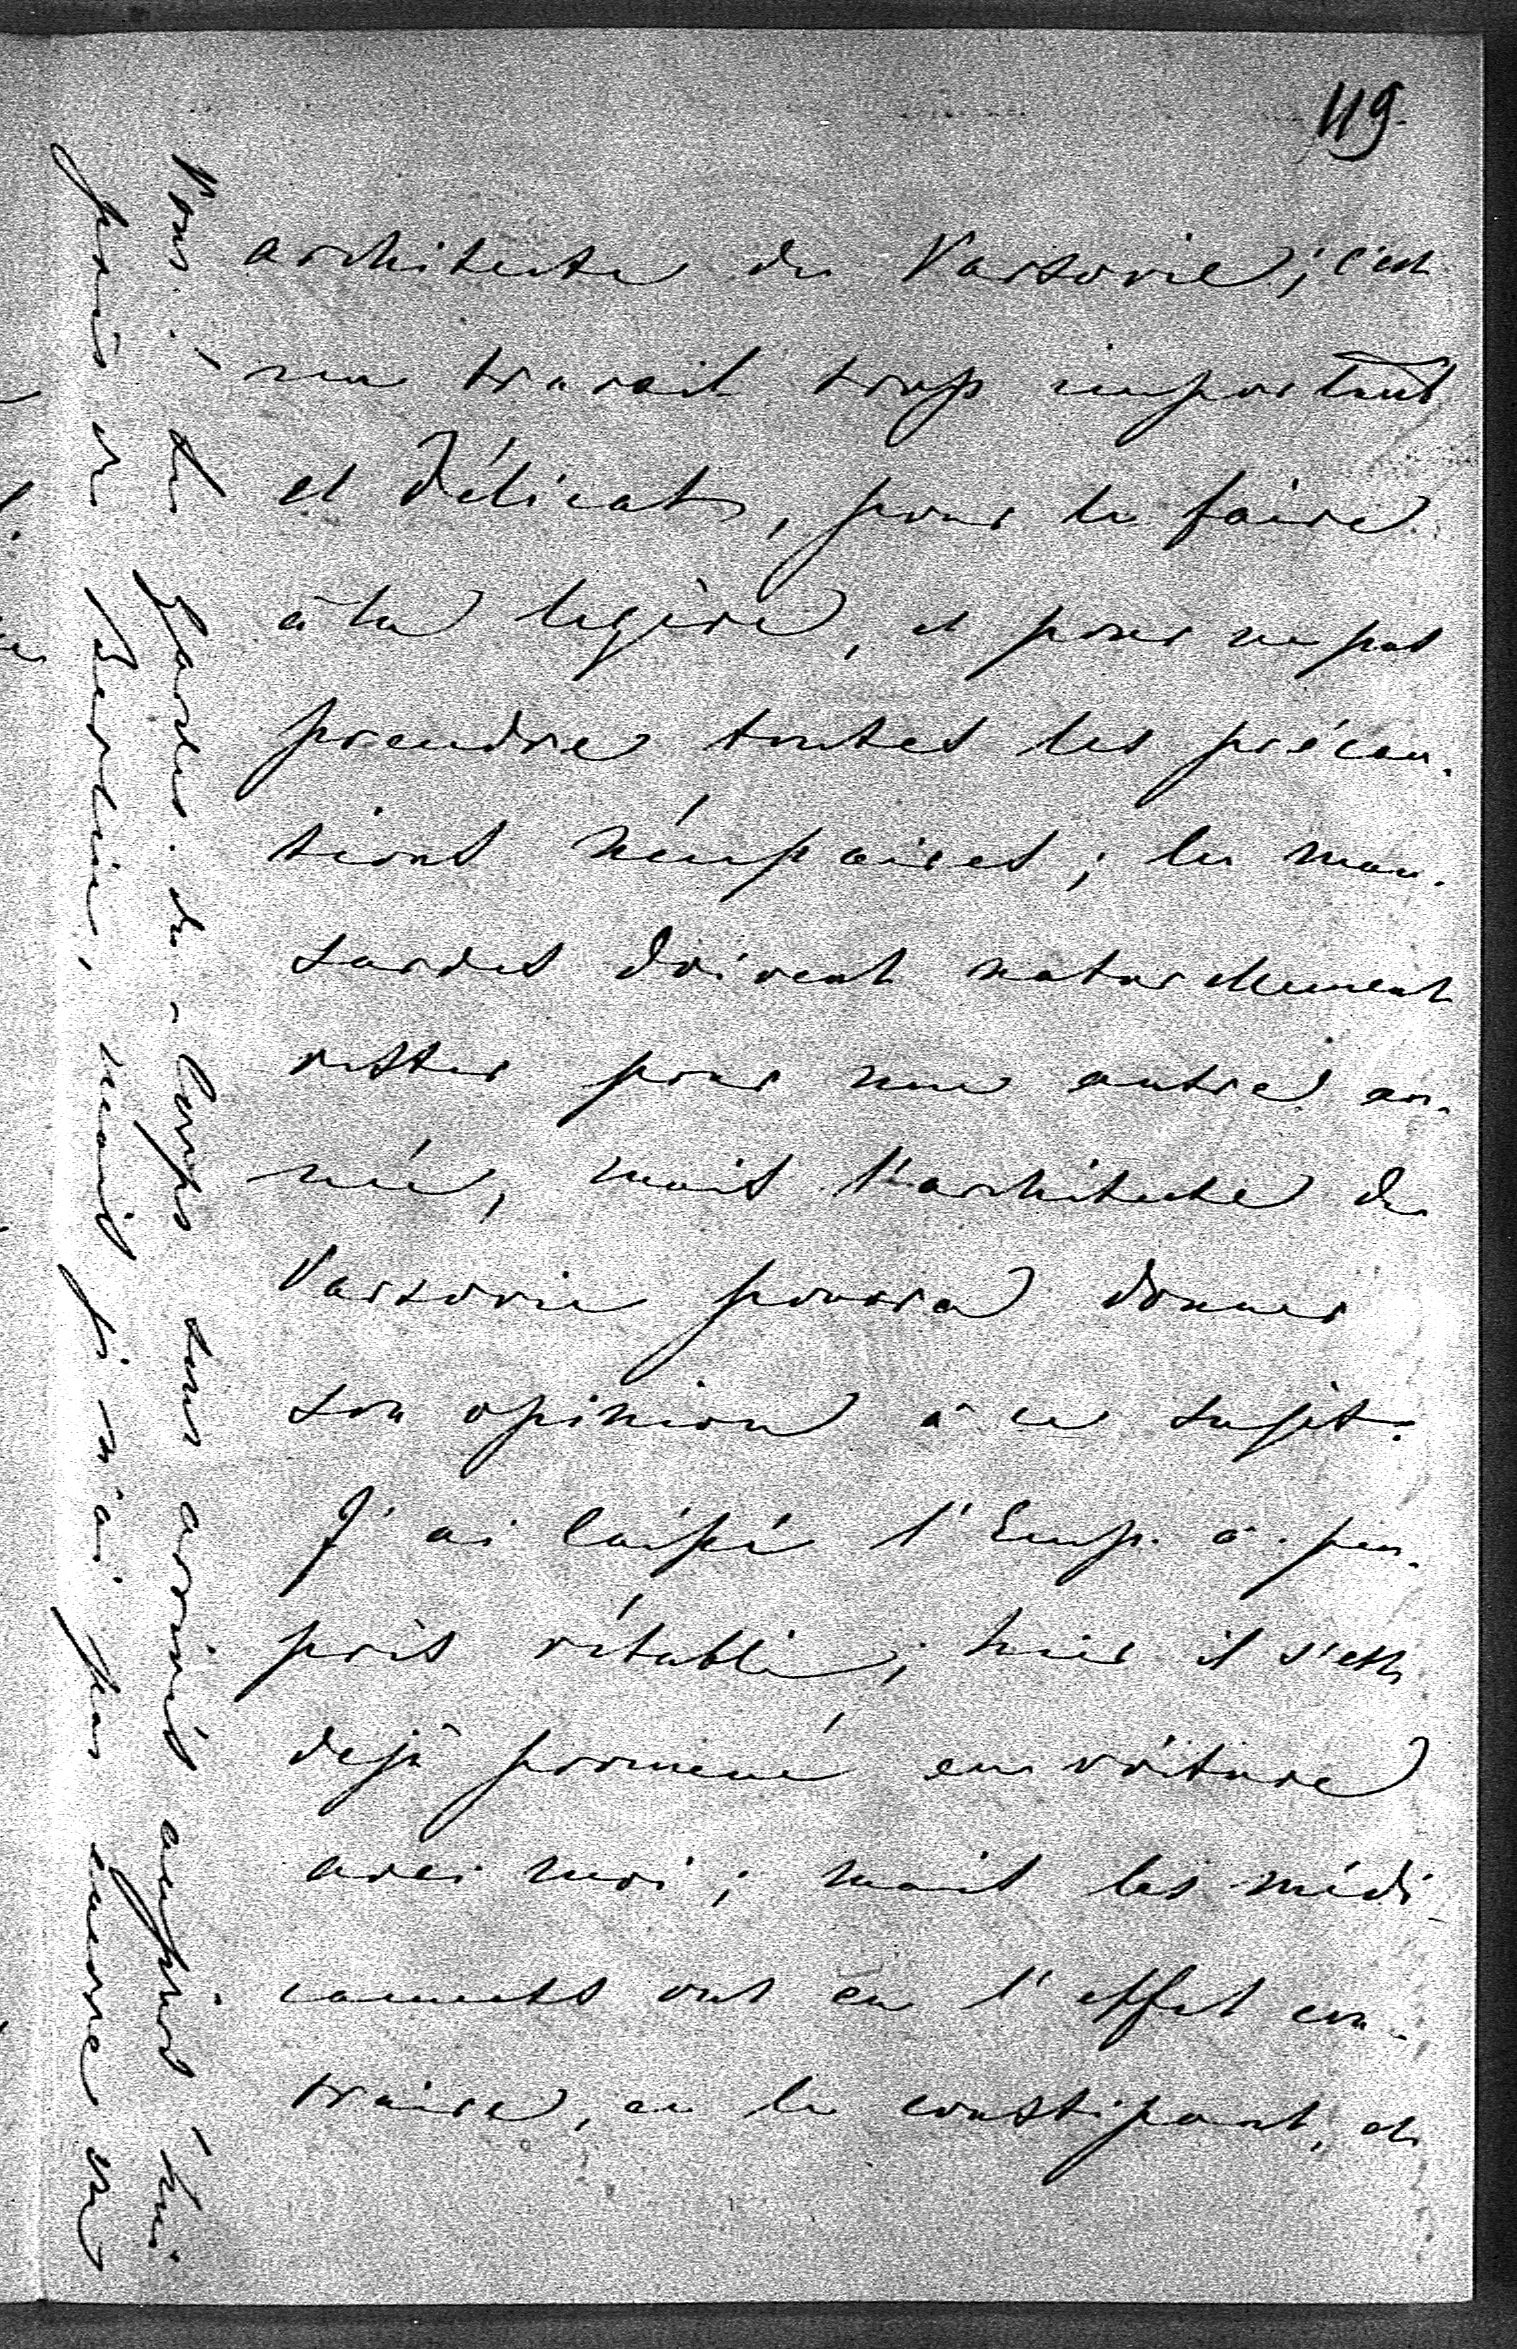 119.
architecte de Varsovie; c'est
un travail trop important
et délicat, pour le faire
à la legère, et pour ne pas
prendre toutes les précau-
tions nécessaires; les man-
sardes doivent naturellement
rester pour une autre an-
née, mais l'architecte de
Varsovie pourra donner
son opinion à ce sujet.
J'ai laissé l'Emp. à peu-
près rétabli; hier il s'est
dejà promené en voiture
avec moi; mais les médi-
caments ont eu l'effet con-
traire, en le constipant, et
les Gardes-du-Corps sont arrivés aujourd'hui
près de Berlin, mais je n'ai pas encore vu